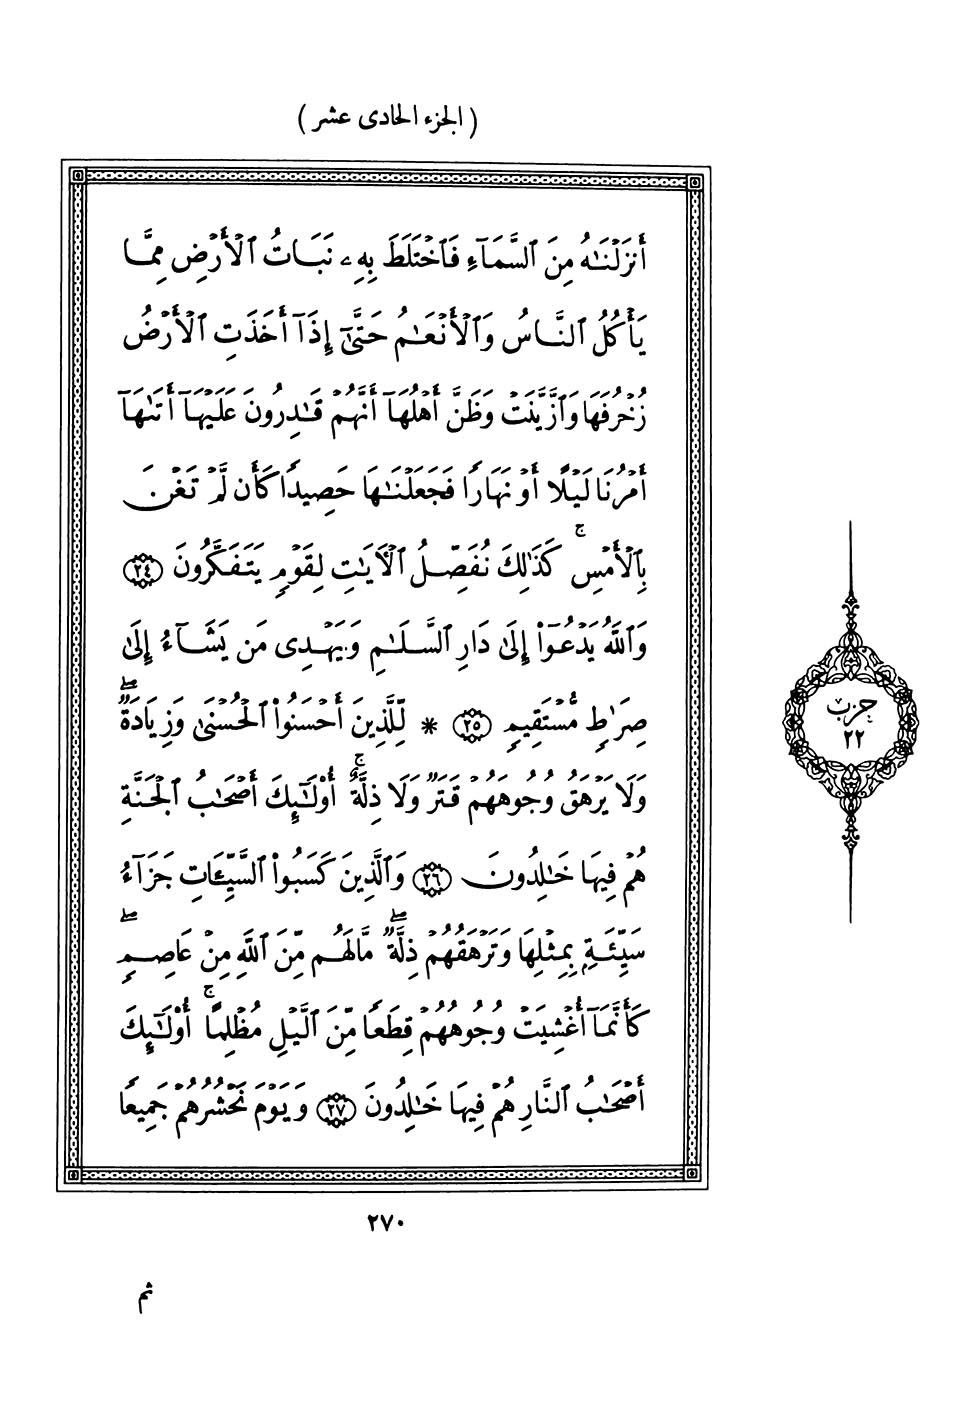 ( الجزء الحادى عشر )
أَنزَلْنَٰهُ مِنَ ٱلسَّمَآءِ فَٱخْتَلَطَ بِهِۦ نَبَاتُ ٱلْأَرْضِ مِمَّا
يَأْكُلُ ٱلنَّاسُ وَٱلْأَنْعَٰمُ حَتَّىٰٓ إِذَآ أَخَذَتِ ٱلْأَرْضُ
زُخْرُفَهَا وَٱزَّيَّنَتْ وَظَنَّ أَهْلُهَآ أَنَّهُمْ قَٰدِرُونَ عَلَيْهَآ أَتَىٰهَآ
أَمْرُنَا لَيْلًا أَوْ نَهَارًا فَجَعَلْنَٰهَا حَصِيدًا كَأَن لَّمْ تَغْنَ
بِٱلْأَمْسِ ۚ كَذَٰلِكَ نُفَصِّلُ ٱلْءَايَٰتِ لِقَوْمٍ يَتَفَكَّرُونَ ٢٤
وَٱللَّهُ يَدْعُوٓا۟ إِلَىٰ دَارِ ٱلسَّلَٰمِ وَيَهْدِى مَن يَشَآءُ إِلَىٰ
صِرَٰطٍ مُّسْتَقِيمٍ ٢٥ * لِّلَّذِينَ أَحْسَنُوا۟ ٱلْحُسْنَىٰ وَزِيَادَةٌ ۖ
وَلَا يَرْهَقُ وُجُوهَهُمْ قَتَرٌ وَلَا ذِلَّةٌ ۚ أُو۟لَٰٓئِكَ أَصْحَٰبُ ٱلْجَنَّةِ
هُمْ فِيهَا خَٰلِدُونَ ٢٦ وَٱلَّذِينَ كَسَبُوا۟ ٱلسَّيِّـَٔاتِ جَزَآءُ
سَيِّئَةٍۭ بِمِثْلِهَا وَتَرْهَقُهُمْ ذِلَّةٌ ۖ مَّا لَهُم مِّنَ ٱللَّهِ مِنْ عَاصِمٍ ۖ
كَأَنَّمَآ أُغْشِيَتْ وُجُوهُهُمْ قِطَعًا مِّنَ ٱلَّيْلِ مُظْلِمًا ۚ أُو۟لَٰٓئِكَ
أَصْحَٰبُ ٱلنَّارِ هُمْ فِيهَا خَٰلِدُونَ ٢٧ وَيَوْمَ نَحْشُرُهُمْ جَمِيعًا
حزب
٢٢
٢٧٠
ثم